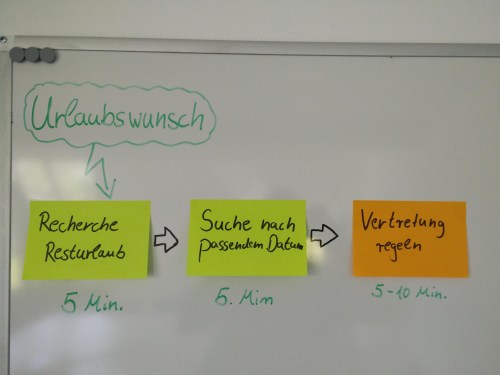 Urlaubswunsch
Recherche
Resturlaub
5 Min.
Suche nach
passendem Datum
5. Min
Vertretung
regeln
5-10 Min.